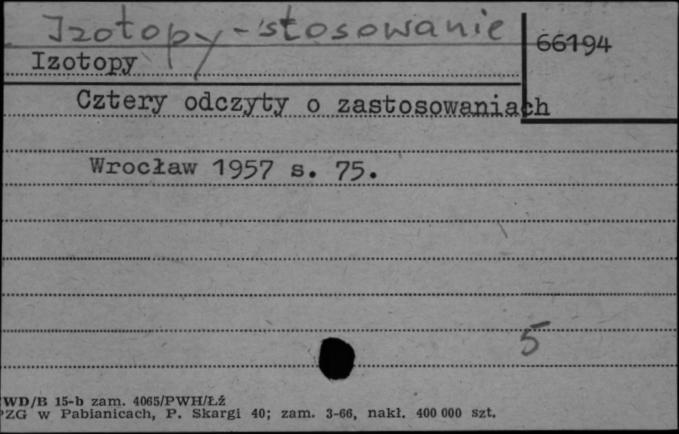 Izotopy-stosowanie
66194
Izotopy
Cztery odczyty o zastosowaniach
Wrocław 1957 s. 75.
5
WD/B 15-b zam. 4065/PWH/Łź
PZG w Pabianicach, P. Skargi 40; zam. 3-66, nakł. 400 000 szt.